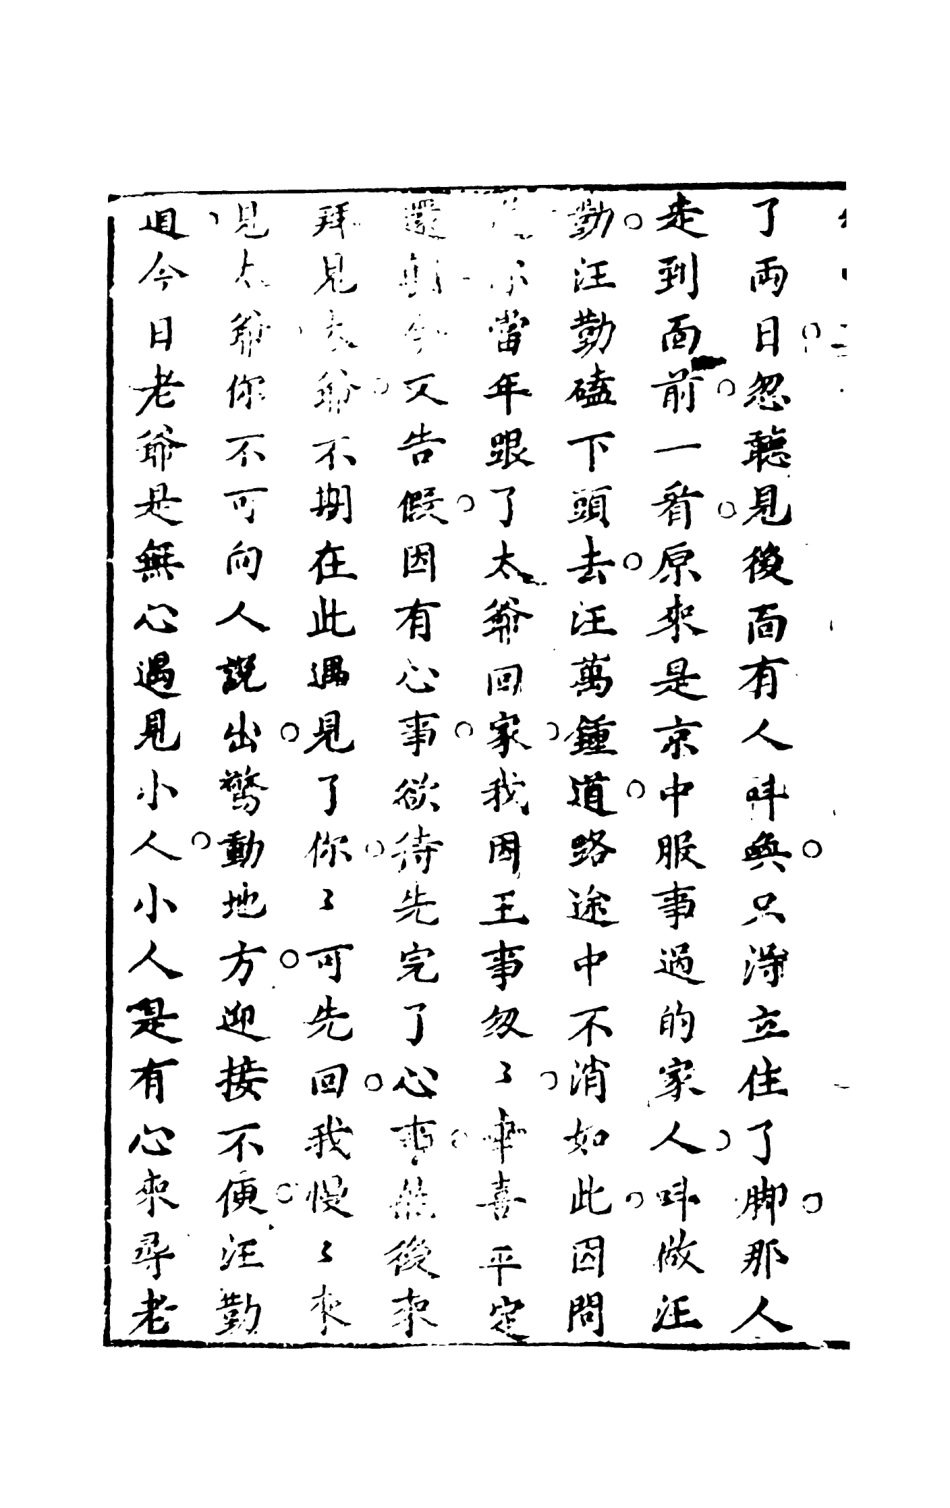 了兩日忽聽見後面有人呌喚只得立住了脚那人
走到面前一看原來是京中服事過的家人呌做汪
勤汪勤磕下頭去汪萬鍾道路途中不消如此因問
當年跟了太爺回家我因王事匆〻幸喜平定
還朝今又告假因有心事欲待先完了心事然後來
拜見太爺不期在此遇見了你〻可先回我慢〻來
見太爺你不可向人說出驚動地方迎接不便汪勤
道今日老爺是無心遇見小人小人是有心來尋老